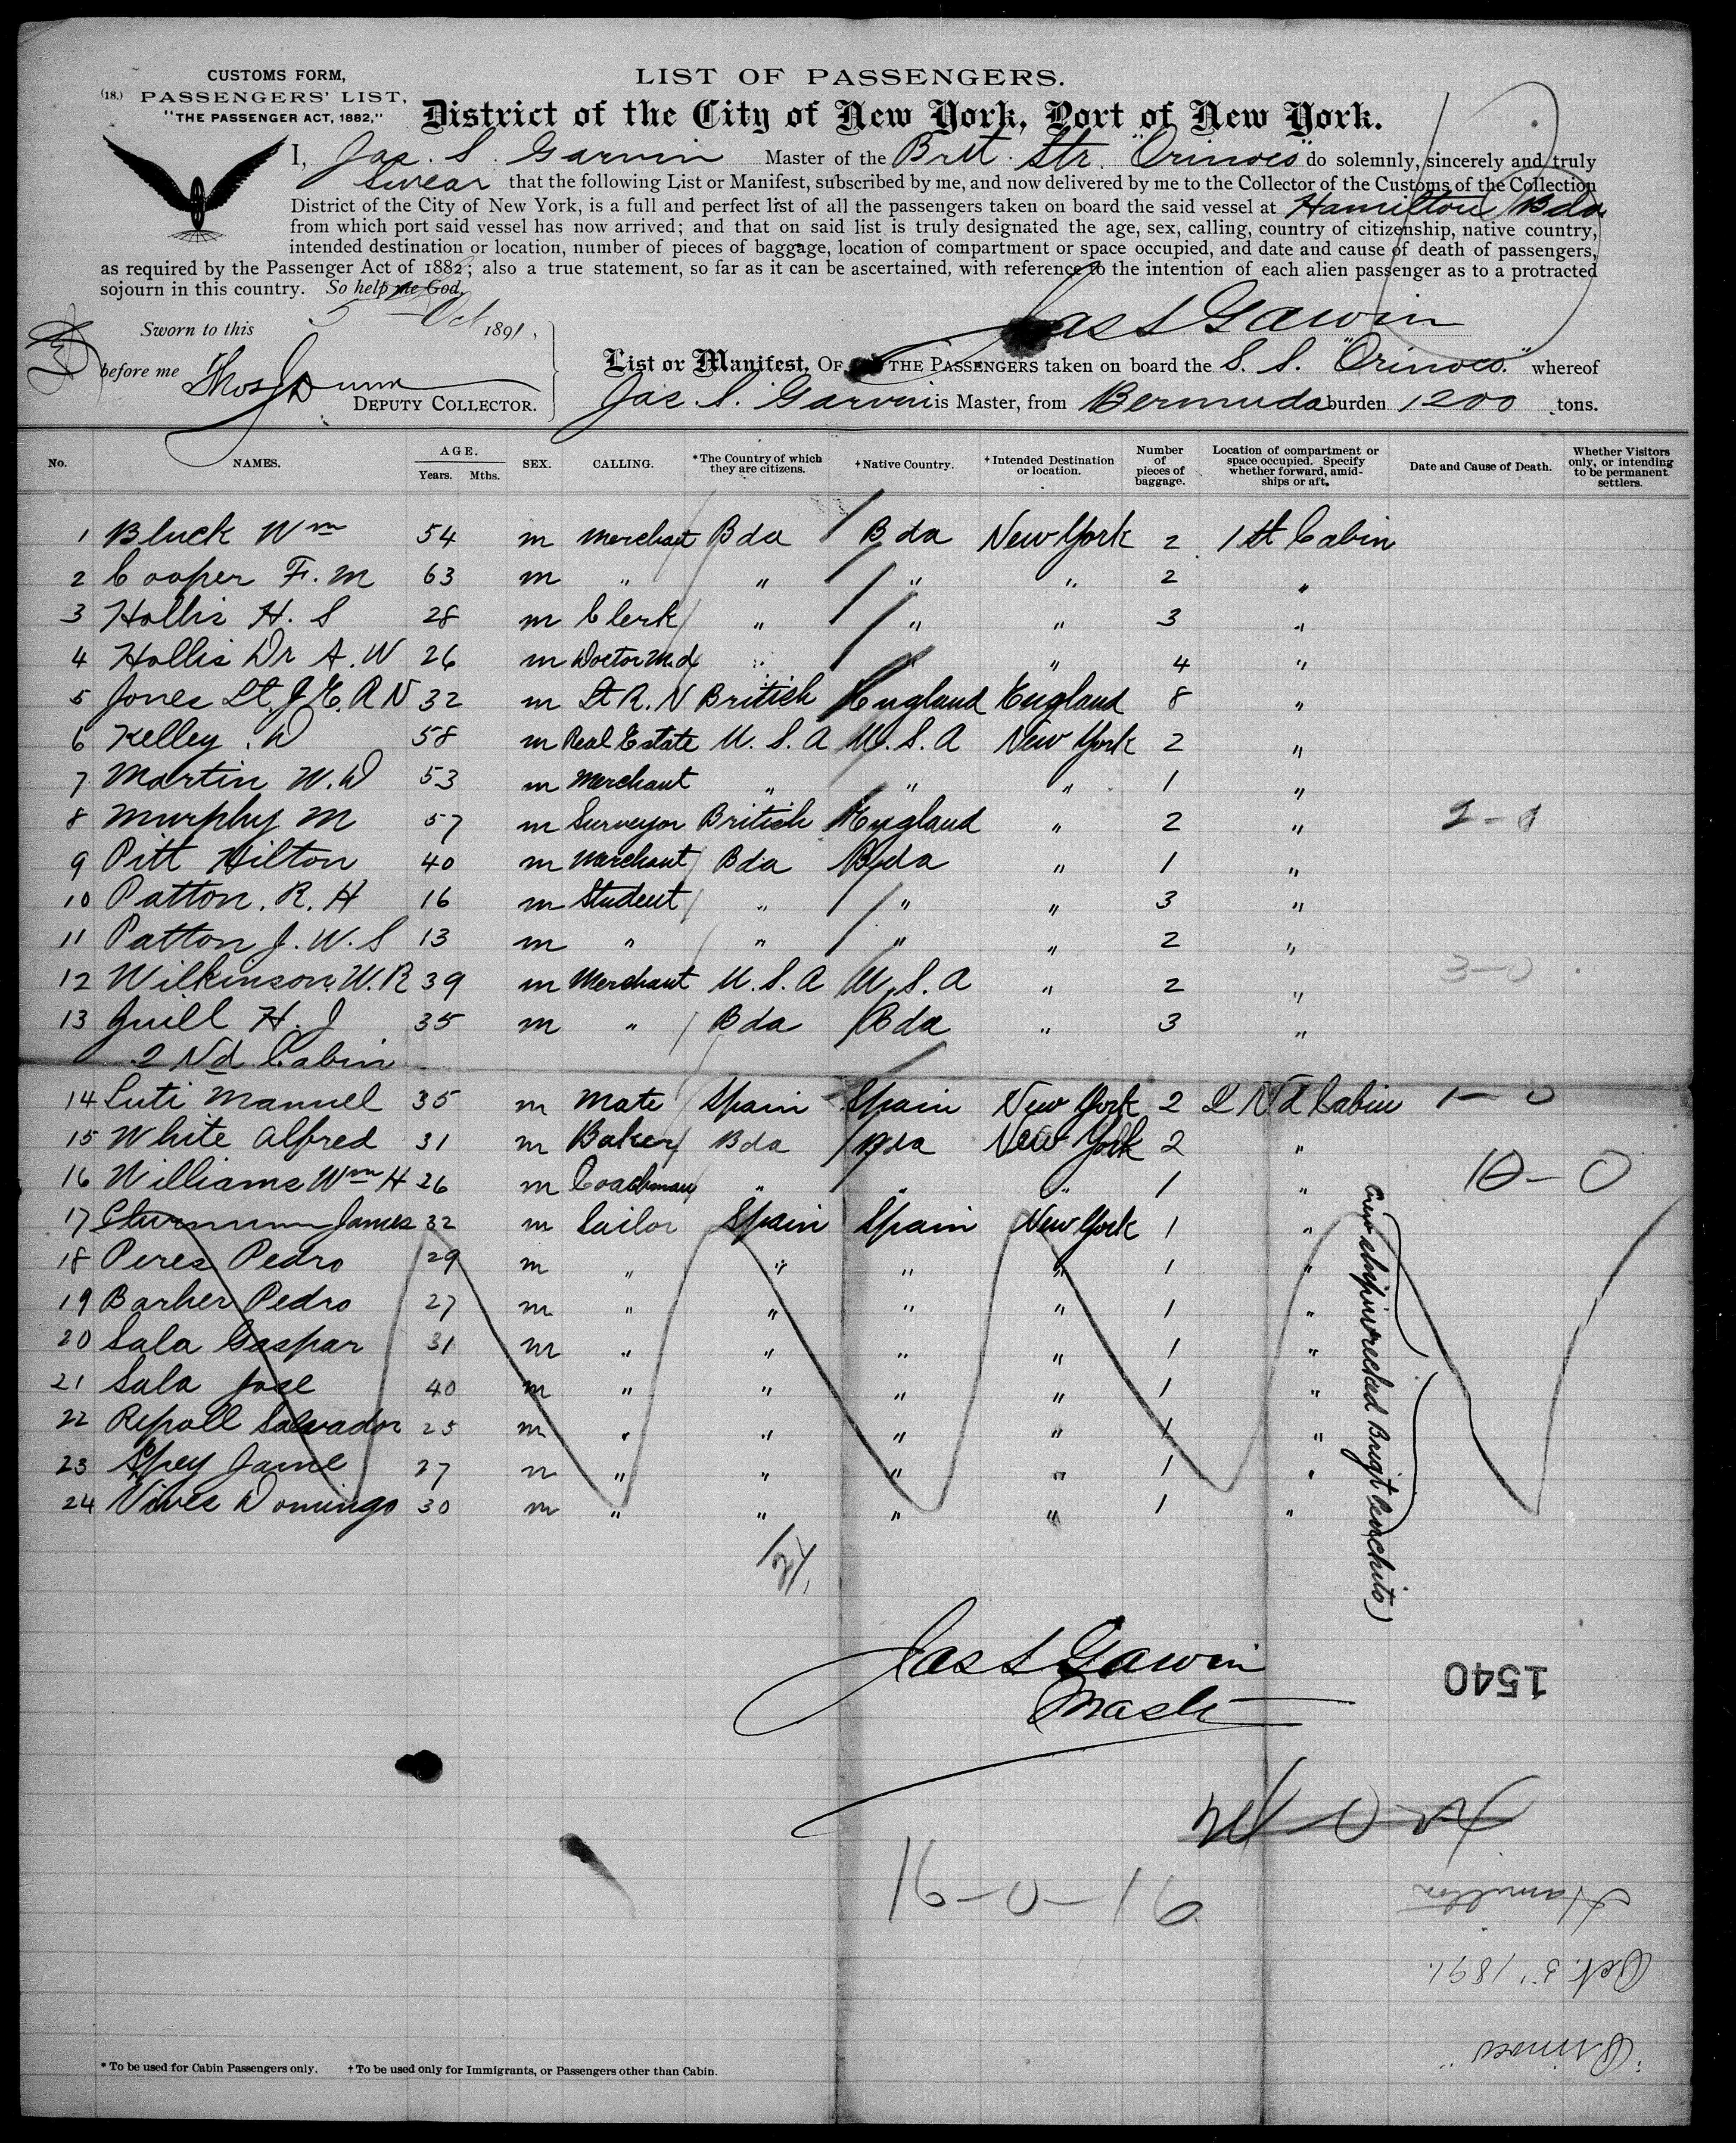 CUSTOMS FORM,
(18.) PASSENGERS' LIST,
"THE PASSENGER ACT, 1882."
LIST OF PASSENGERS.
District of the City of New York, Port of New York.
I, Jas. S. Garvin Master of the Brit. Str. "Orinoco" do solemnly, sincerely and truly
swear that the following List or Manifest, subscribed by me, and now delivered by me to the Collector of the Customs of the Collection
District of the City of New York, is a full and perfect list of all the passengers taken on board the said vessel at Hamilton Bda
from which port said vessel has now arrived; and that on said list is truly designated the age, sex, calling, country of citizenship, native country,
intended destination or location, number of pieces of baggage, location of compartment or space occupied, and date and cause of death of passengers,
as required by the Passenger Act of 1882; also a true statement, so far as it can be ascertained, with reference to the intention of each alien passenger as to a protracted
sojourn in this country. So help me God.
Sworn to this 5 Oct 1891,
Jas S Garvin
before me Thos J Dunn
DEPUTY COLLECTOR.
List or Manifest, OF THE PASSENGERS taken on board the S. S. "Orinoco" whereof
Jas. S. Garvin is Master, from Bermuda burden 1200 tons.
No. NAMES. AGE. Years. Mths. SEX. CALLING. *The Country of which they are citizens. †Native Country. †Intended Destination or location. Number of pieces of baggage. Location of compartment or space occupied. Specify whether forward, amidships or aft. Date and Cause of Death. Whether Visitors only, or intending to be permanent settlers.
1 Bluck Wm 54 m Merchant Bda Bda New York 2 1st Cabin
2 Cooper F. M 63 m " " " " 2 "
3 Hollis H. S 28 m Clerk " " " 3 "
4 Hollis Dr A. W 26 m Doctor M.d " " " 4 "
5 Jones Lt. J. E. R N 32 m Lt R. N British England England 8 "
6 Kelley . D 58 m Real Estate U. S. A U. S. A New York 2 "
7 Martin W. D 53 m Merchant " " " 1 "
8 Murphy M 57 m Surveyor British England " 2 "
9 Pitt Hilton 40 m Merchant Bda Bda " 1 "
10 Patton. R. H 16 m Student " " " 3 "
11 Patton J. W. S 13 m " " " " 2 "
12 Wilkinson W. R 39 m Merchant U. S. A U. S. A " 2 " 3-0
13 Guill H. J 35 m " Bda Bda " 3 "
2 Nd Cabin
14 Luti Manuel 35 m Mate Spain Spain New York 2 2 Nd Cabin 1-0
15 White Alfred 31 m Baker Bda Bda New York 2 "
16 Williams Wm H 26 m Coachman " " " 1 " 10-0
17 James 32 m Sailor Spain Spain New York 1 "
18 Peres Pedro 29 m " " " " 1 "
19 Barber Pedro 27 m " " " " 1 "
20 Sala Gaspar 31 m " " " " 1 "
21 Sala Jose 40 m " " " " 1 "
22 Ripoll Salvador 25 m " " " " 1 "
23 Jaime 27 m " " " " 1 "
24 Vives Domingo 30 m " " " " 1 "
Crew shipwrecked Brigt Conchita)
24
Jas S Garvin
Master
1540
16-0-16
Hamilton
Oct. 5" 1891.
"Orinoco"
*To be used for Cabin Passengers only. †To be used only for Immigrants, or Passengers other than Cabin.